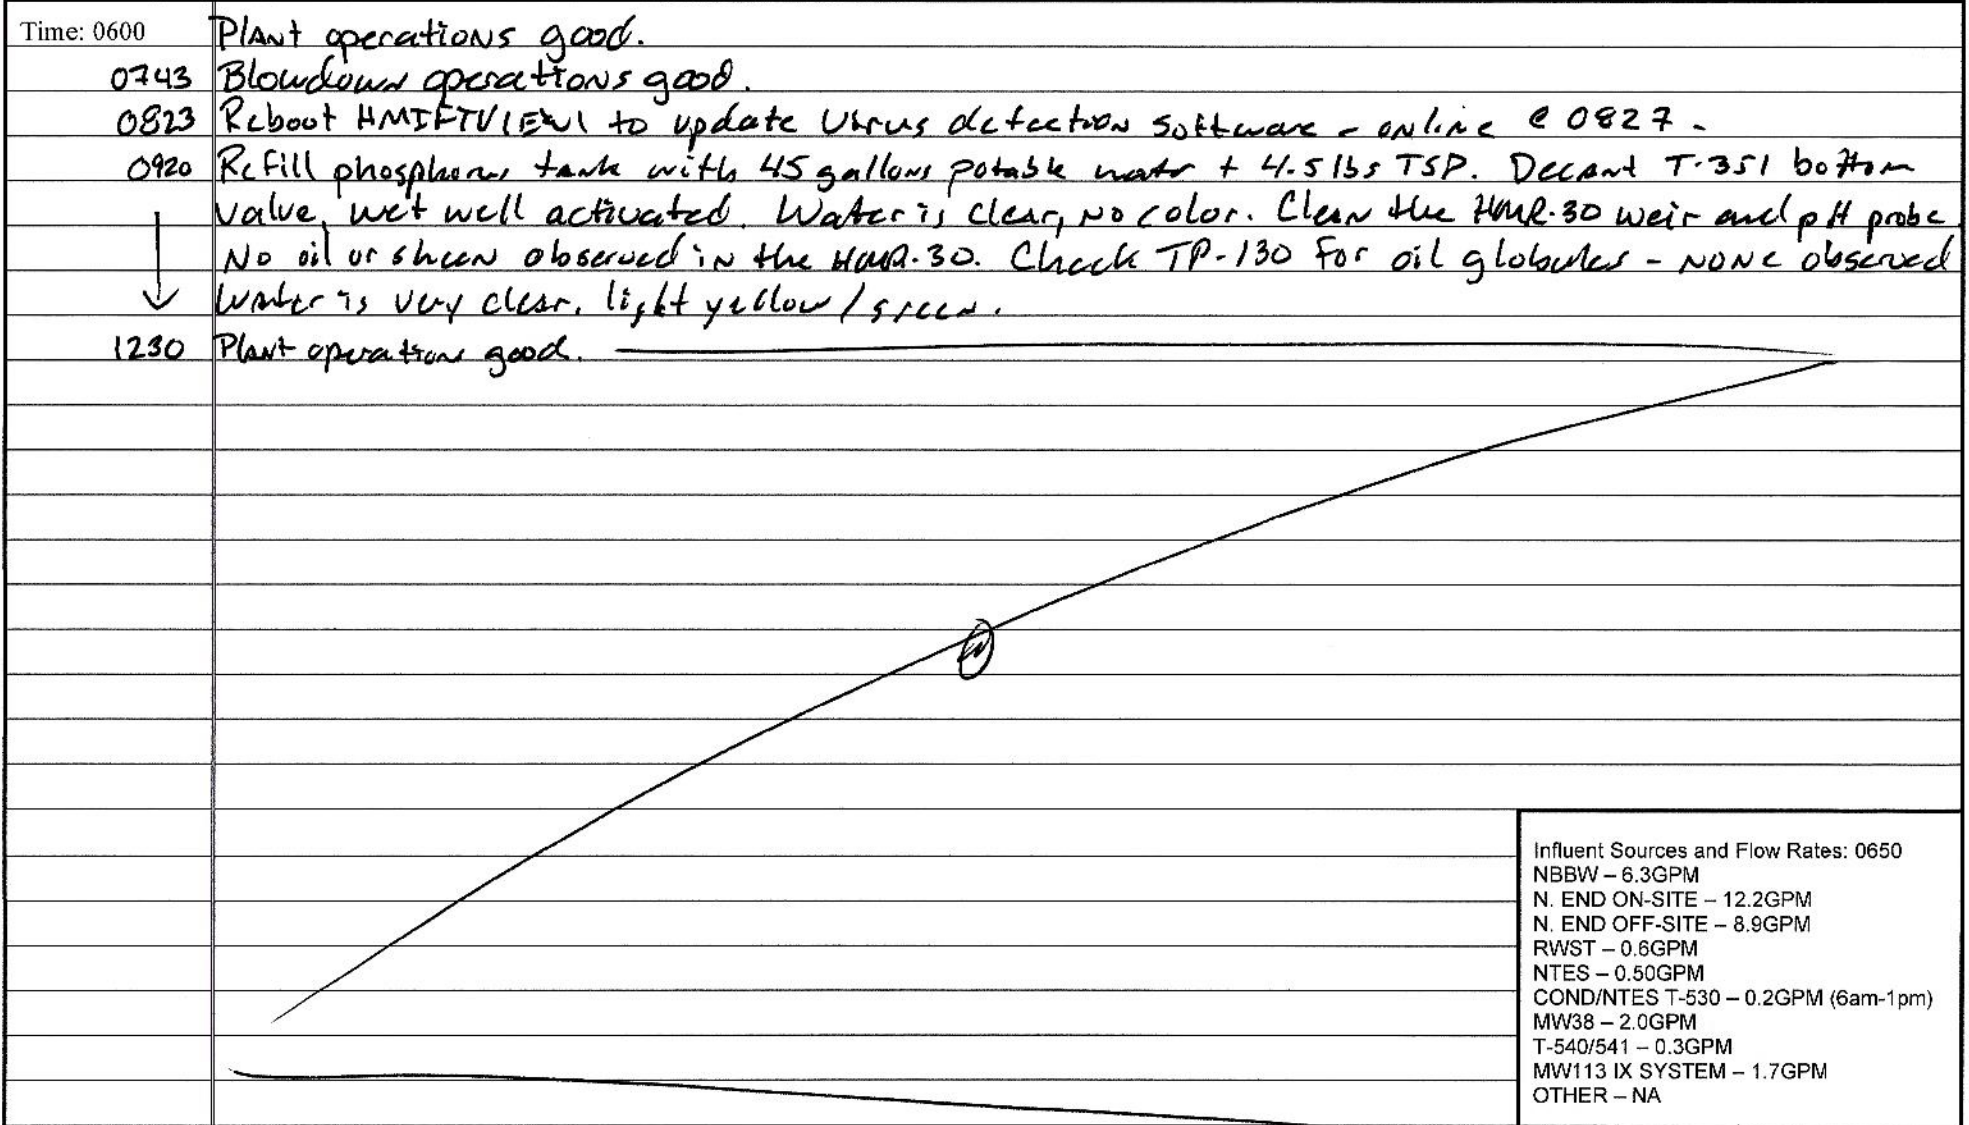 Time: 0600 Plant operations good.
0743 Blowdown operations good.
0823 Reboot HMIFTVIEW1 to update virus detection software - online @ 0827.
0920 Refill phosphorus tank with 45 gallons potable water + 4.5 lbs TSP. Decant T-351 bottom
valve, wet well activated. Water is clear, no color. Clean the HMR-30 weir and pH probe.
No oil or sheen observed in the HMR-30. Check TP-130 for oil globules - NONE observed
Water is very clear, light yellow / green.
1230 Plant operations good.
Influent Sources and Flow Rates: 0650
NBBW – 6.3GPM
N. END ON-SITE – 12.2GPM
N. END OFF-SITE – 8.9GPM
RWST – 0.6GPM
NTES – 0.50GPM
COND/NTES T-530 – 0.2GPM (6am-1pm)
MW38 – 2.0GPM
T-540/541 – 0.3GPM
MW113 IX SYSTEM – 1.7GPM
OTHER – NA